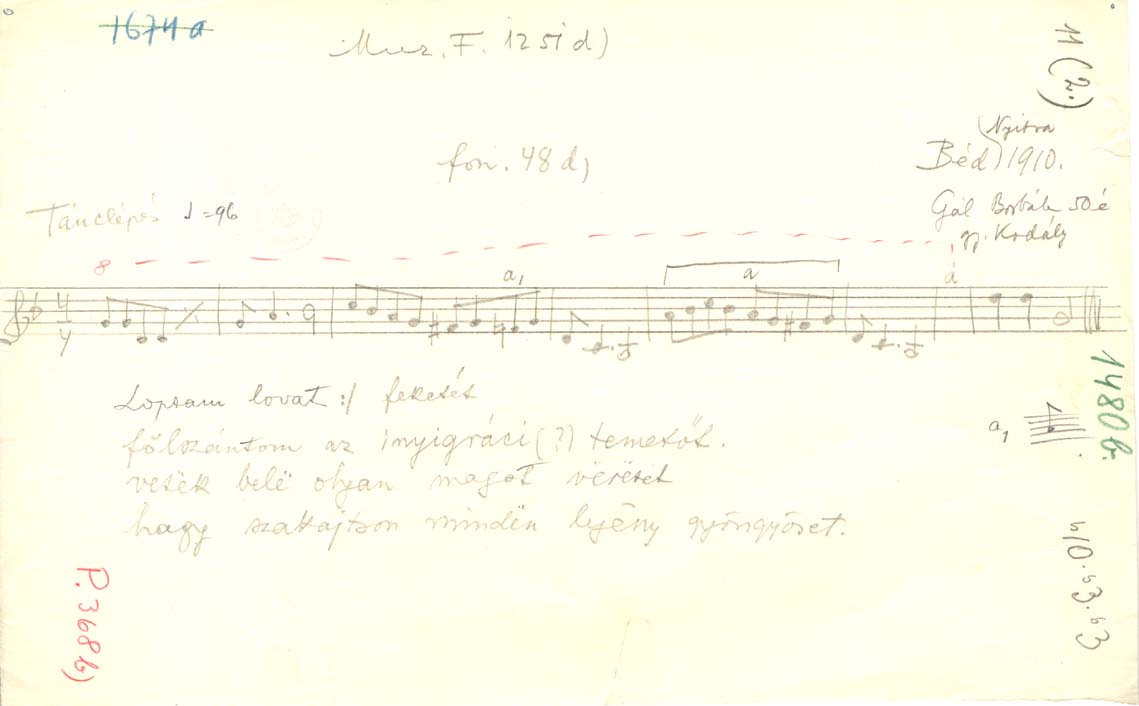 1674a
Muz. F. 1251 d)
11 (2.)
fon. 48 d)
(Nyitra
Béd) 1910.
Gál Borbála 50 é
gy. Kodály
Tánclépés ♩=96
8
a,
a
a
4
4
Loptam lovat :/ feketét
fölszántom az inyigráci (?) temetőt.
vetëk belé olyan magot vërëset
hagy szakajtson mindën legény gyöngyöset.
a₁
1480b.
P. 368b)